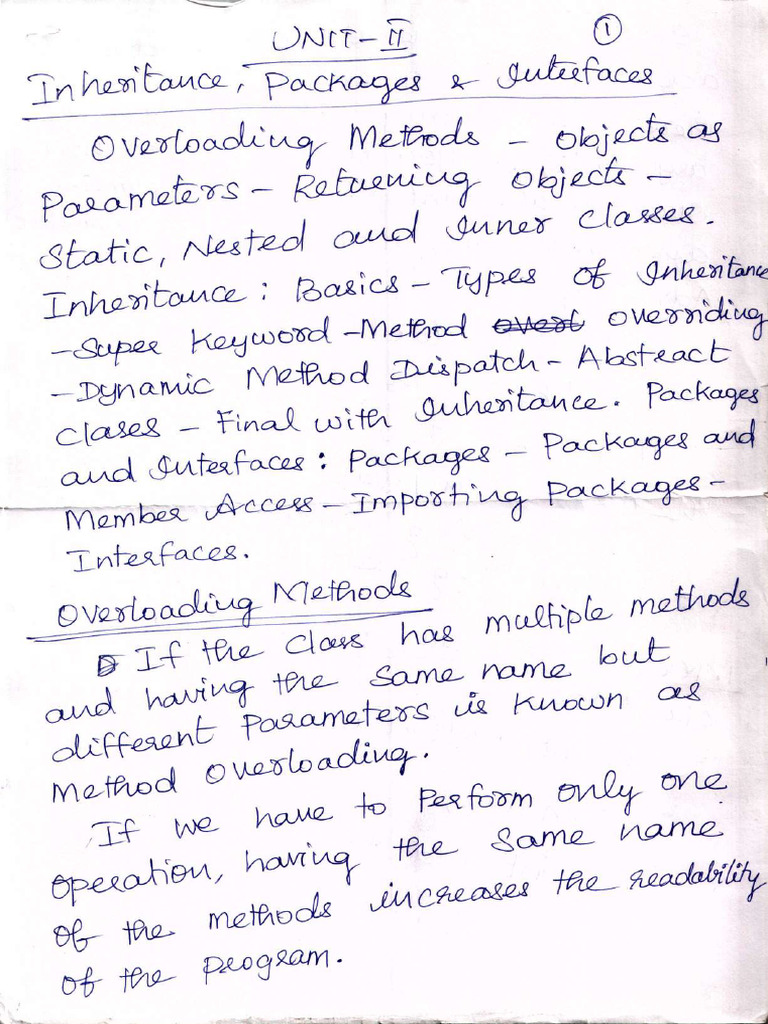 UNIT-II
①
Inheritance, Packages & Interfaces
Overloading Methods - Objects as
Parameters - Returning Objects -
Static, Nested and Inner Classes.
Inheritance: Basics - Types of Inheritance
- Super Keyword - Method overl overriding
- Dynamic Method Dispatch - Abstract
Clases - Final with Inheritance. Packages
and Interfaces: Packages - Packages and
Member Access - Importing Packages -
Interfaces.
Overloading Methods
If the Class has multiple methods
and having the same name but
different Parameters is known as
Method Overloading.
If we have to Perform only one
operation, having the same name
of the methods increases the readability
of the program.